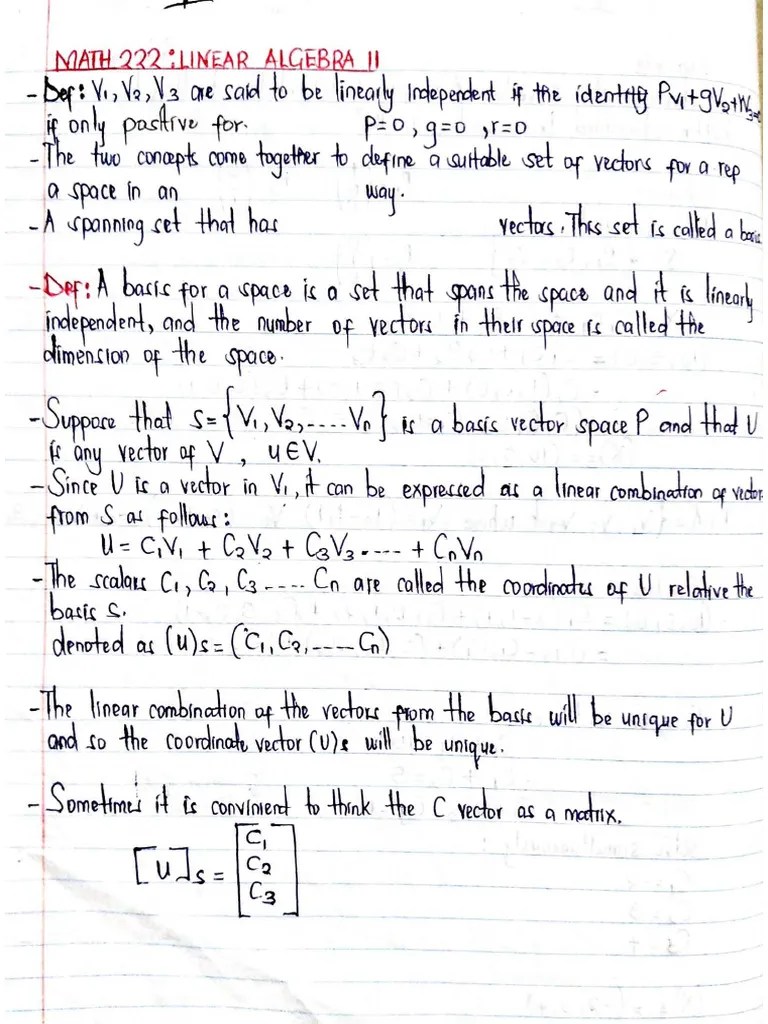 MATH 222: LINEAR ALGEBRA II
- Def: V1, V2, V3 are said to be linearly independent if the identity PV1+gV2+
if only positive for. P=0, g=0, r=0
- The two concepts come together to define a suitable set of vectors for a rep
a space in an way.
- A spanning set that has vectors. This set is called a basis
- Def: A basis for a space is a set that spans the space and it is linearly
independent, and the number of vectors in their space is called the
dimension of the space.
- Suppose that S={V1, V2, ..... Vn} is a basis vector space P and that U
is any vector of V, u∈V.
- Since U is a vector in V1, it can be expressed as a linear combination of vector
from S as follows:
U = C1V1 + C2V2 + C3V3 ..... + CnVn
- The scalars C1, C2, C3 ..... Cn are called the coordinates of U relative the
basis S.
denoted as (U)s = (C1, C2, ----- Cn)
- The linear combination of the vectors from the basis will be unique for U
and so the coordinate vector (U)s will be unique.
- Sometimes it is convinient to think the C vector as a matrix.
[U]s = [C1
C2
C3]